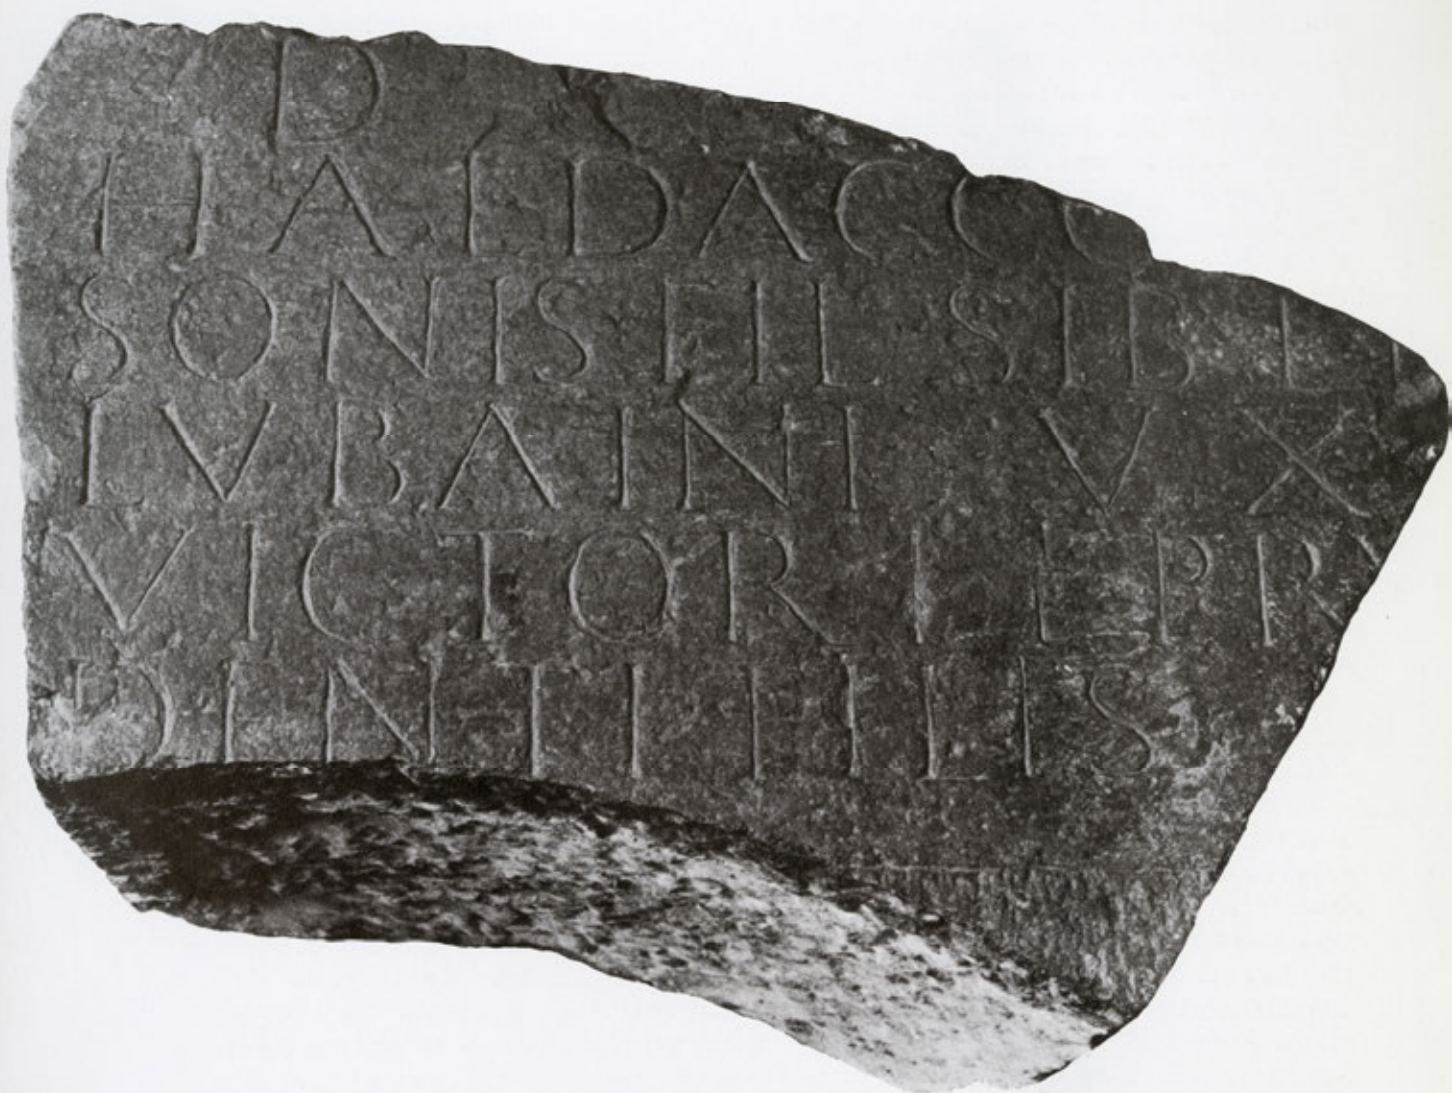 D
HALDACCO
SONIS FIL SIB ET
LVBAINI VX
VICTORI ET PRV
DENTI FILIS